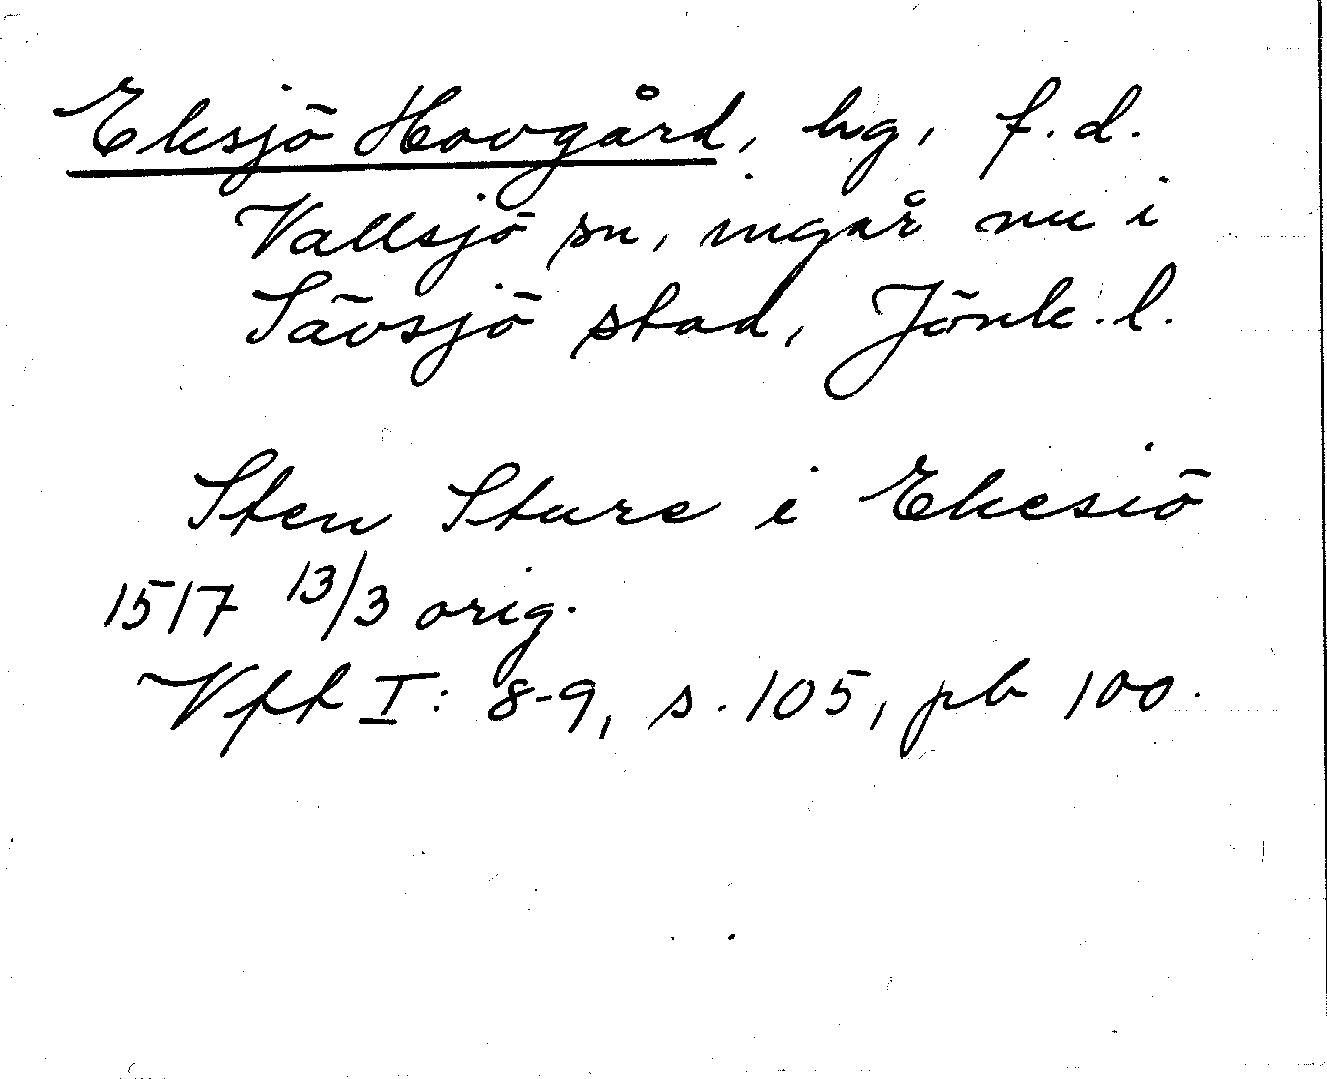 Eksjö Hovgård, hg, f.d.
Vallsjö sn, ingår nu i
Sävsjö stad, Jönk. l.
Sten Sture i Ekesiö
1517 13/3 orig.
Vfft I: 8-9, s. 105, pb 100.